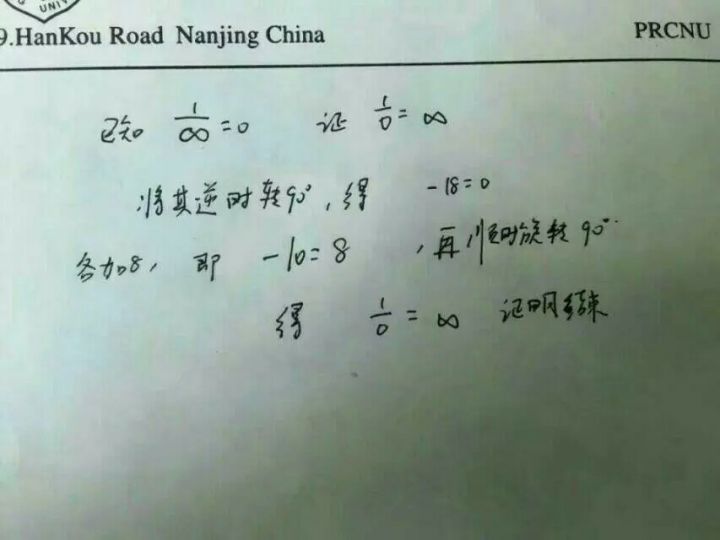 UNIV
9.HanKou Road Nanjing China PRCNU
已知 1/∞ =0 证 1/0 = ∞
将其逆时转90°, 得 -18=0
各加8, 即 -10=8 , 再顺时旋转 90°
得 1/0 = ∞ 证明结束